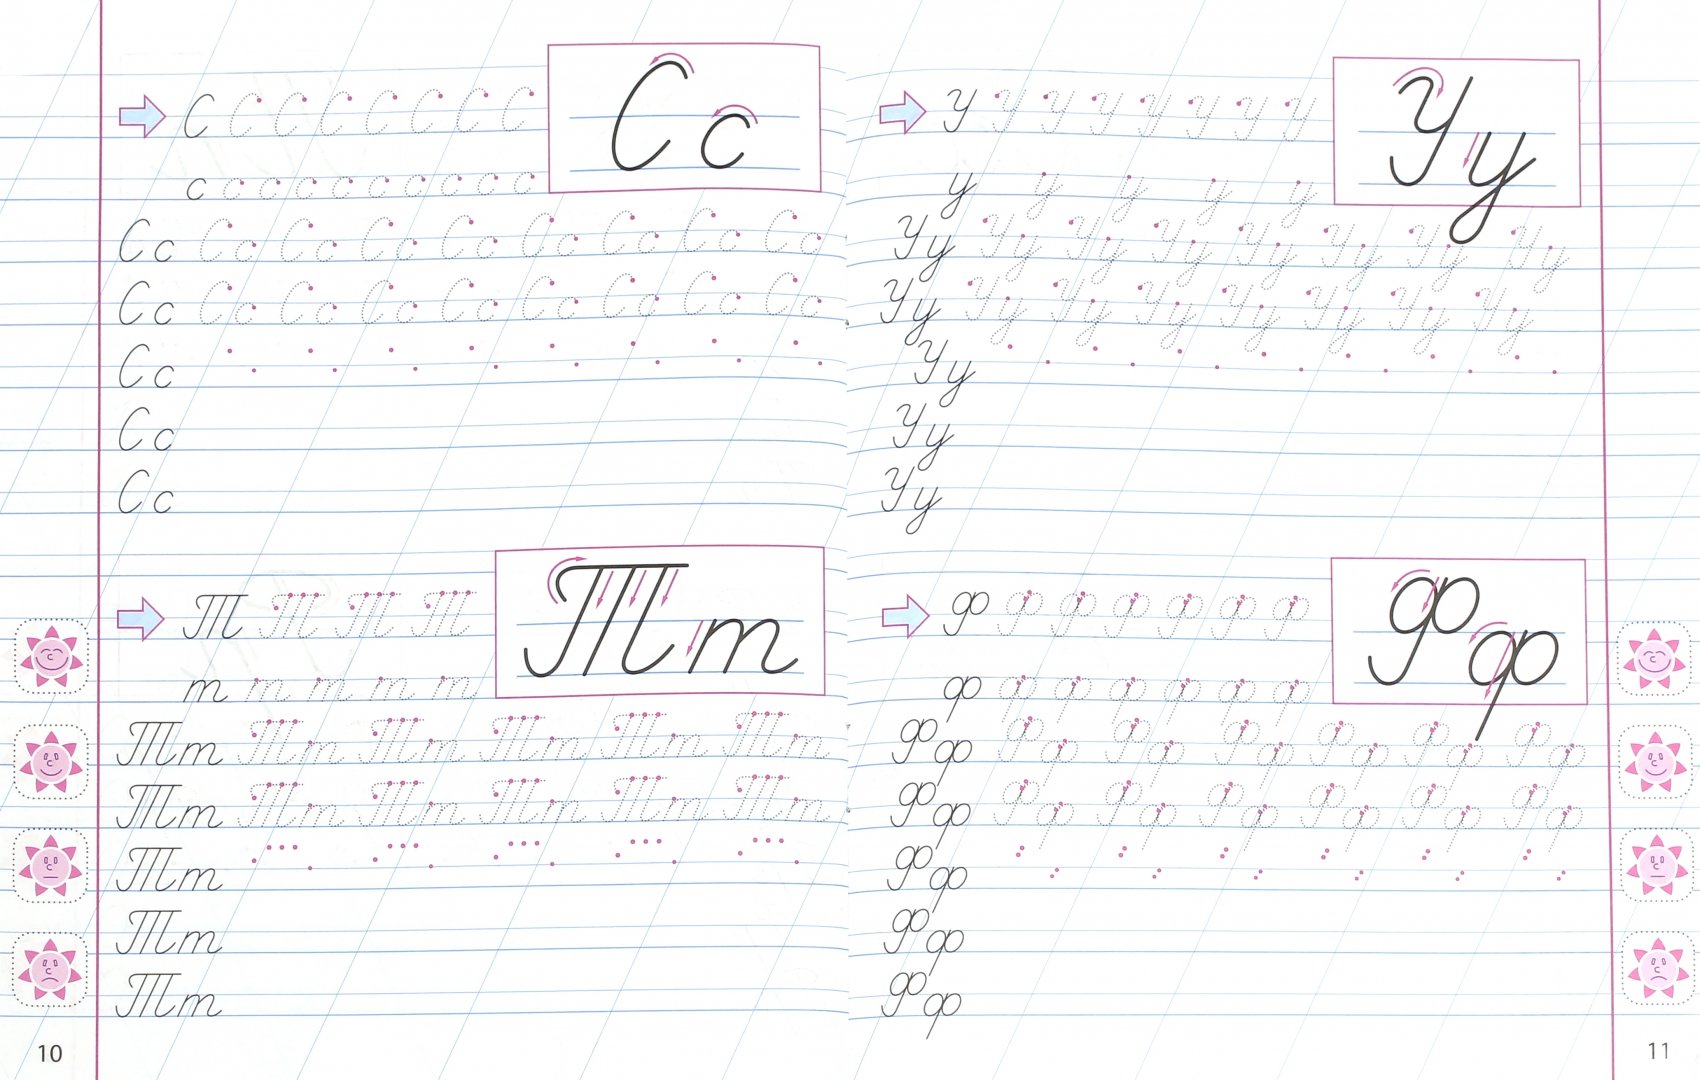 С с
С С С С С С С С
с с с с с с с с с с
Сс Сс Сс Сс Сс Сс Сс Сс Сс
Сс Сс Сс Сс Сс Сс Сс Сс Сс
Сс
Сс
Сс
Т т
Т Т Т Т
т т т т т
Тт Тт Тт Тт Тт Тт
Тт Тт Тт Тт Тт Тт
Тт
Тт
Тт
10
У у
У У У У У У У У
у у у у у
Уу Уу Уу Уу Уу Уу Уу Уу
Уу Уу Уу Уу Уу Уу Уу Уу
Уу
Уу
Уу
Ф ф
Ф Ф Ф Ф Ф Ф Ф
ф ф ф ф ф ф ф
Фф Фф Фф Фф Фф Фф Фф
Фф Фф Фф Фф Фф Фф Фф
Фф
Фф
Фф
11